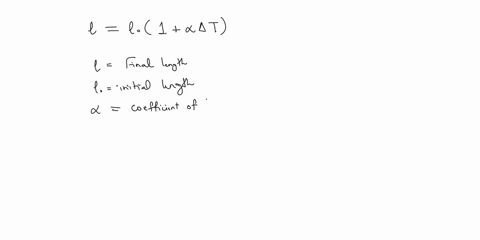 l = l₀ ( 1 + α Δ T )
l = Final length
l₀ = initial length
α = coefficient of